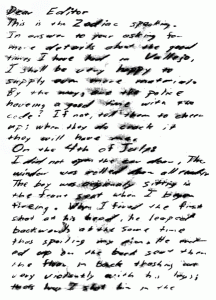 Dear Editor
This is the Zodiac speaking.
In answer to your asking for
more details about the good
times I have had in Vallejo,
I shall be very happy to
supply even more material.
By the way, are the police
haveing a good time with the
code? If not, tell them to cheer
up; when they do crack it
they will have me.
On the 4th of July
I did not open the car door, The
window was rolled down all ready.
The boy was sitting in
the front seat when I began
fireing. When I fired the first
shot at his head, he leaped
backwards at the same time
thus spoiling my aim. He end-
ed up on the back seat then
the floor in back thashing out
very violently with his legs;
thats how I shot him in the